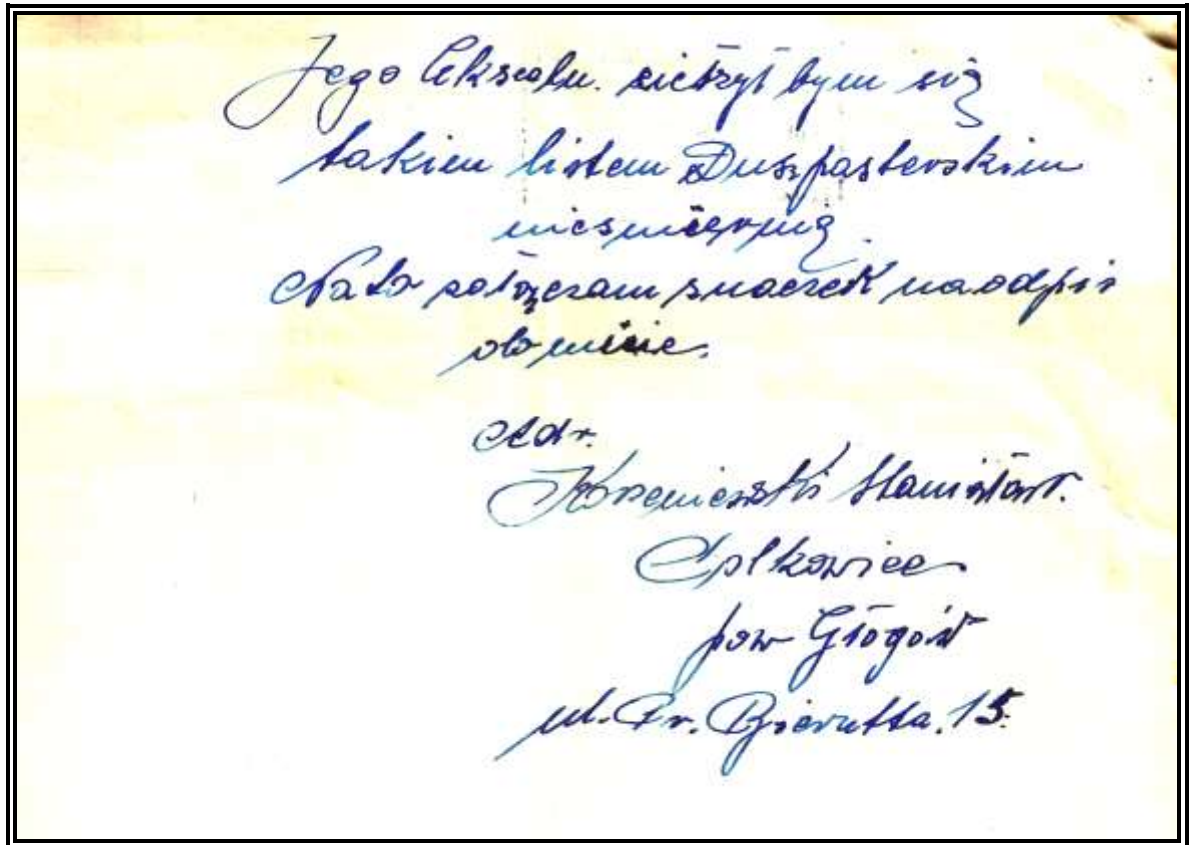 Jego Ekscelu. cieszył bym się
takiem listem Duszpasterskim
niesmiernią.
Na to załączam znaczek na odpis
do mnie.
Adr.
Korzeniewski Stanisław.
Polkowice
pow Głogów
ul. Pr. Bierutta. 15.